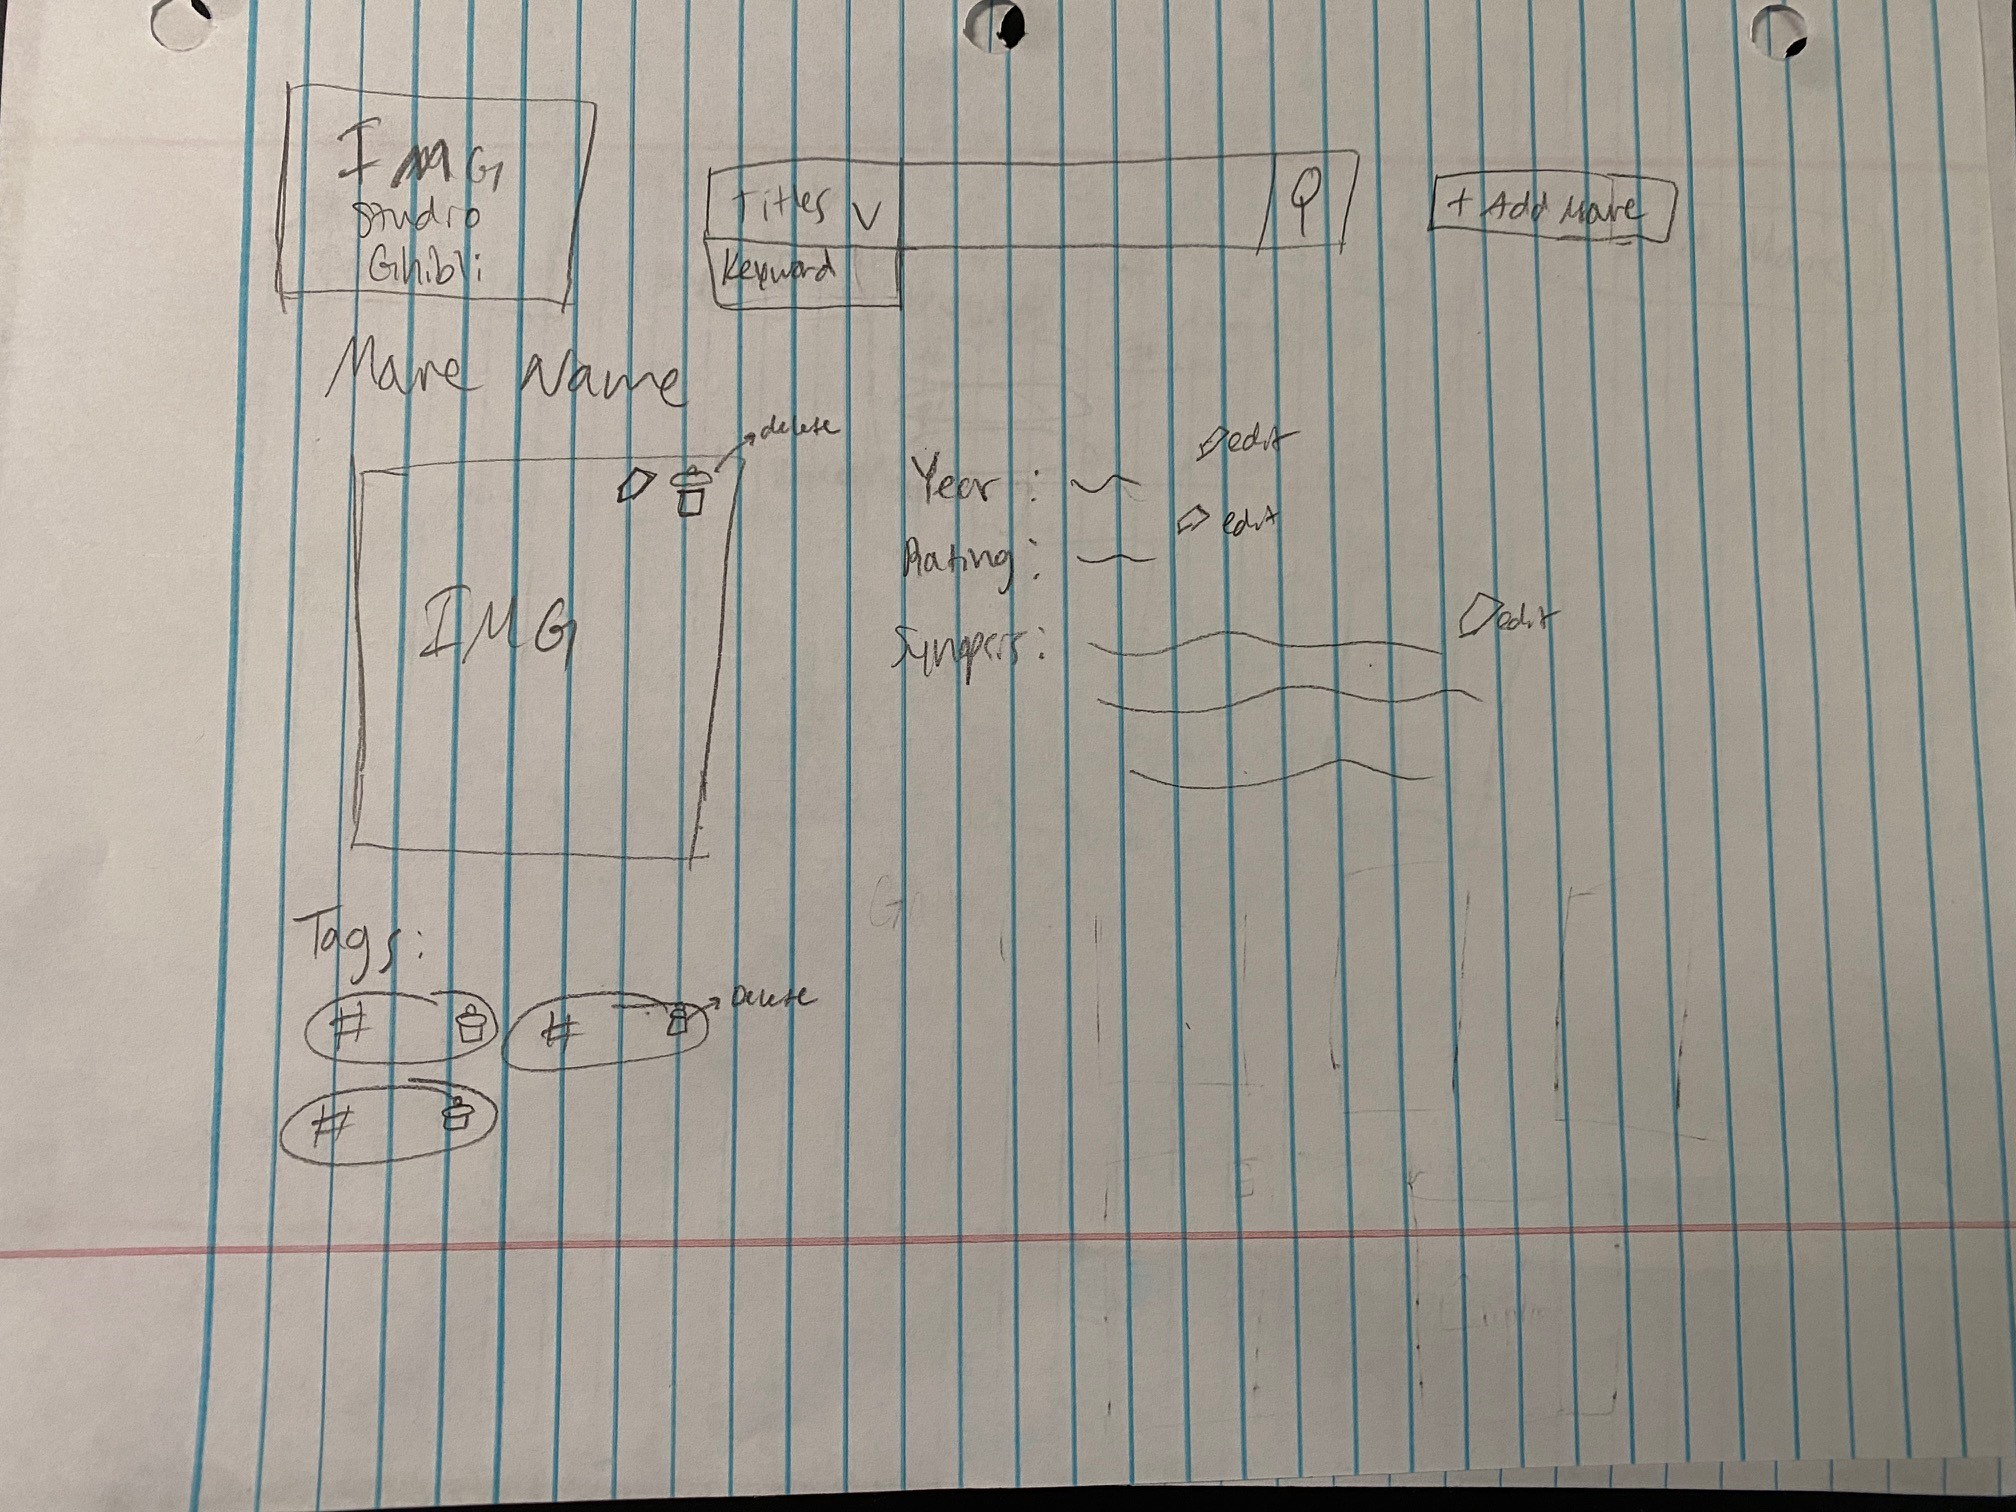 IMG
Studio
Ghibli
Titles V
Keyword
+ Add Movie
Movie Name
delete
IMG
Year :
edit
Rating :
edit
Synopsis :
edit
Tags :
#
#
Delete
#